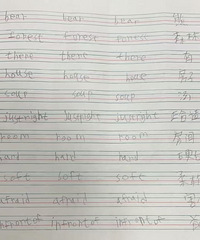 bear bear bear 熊
forest forest forest 森林
there there there 有
house house house 房子
soup soup soup 汤
justright justright justright
room room room 房间
hard hard hard
soft soft soft
afraid afraid afraid
infrontof infrontof infrontof